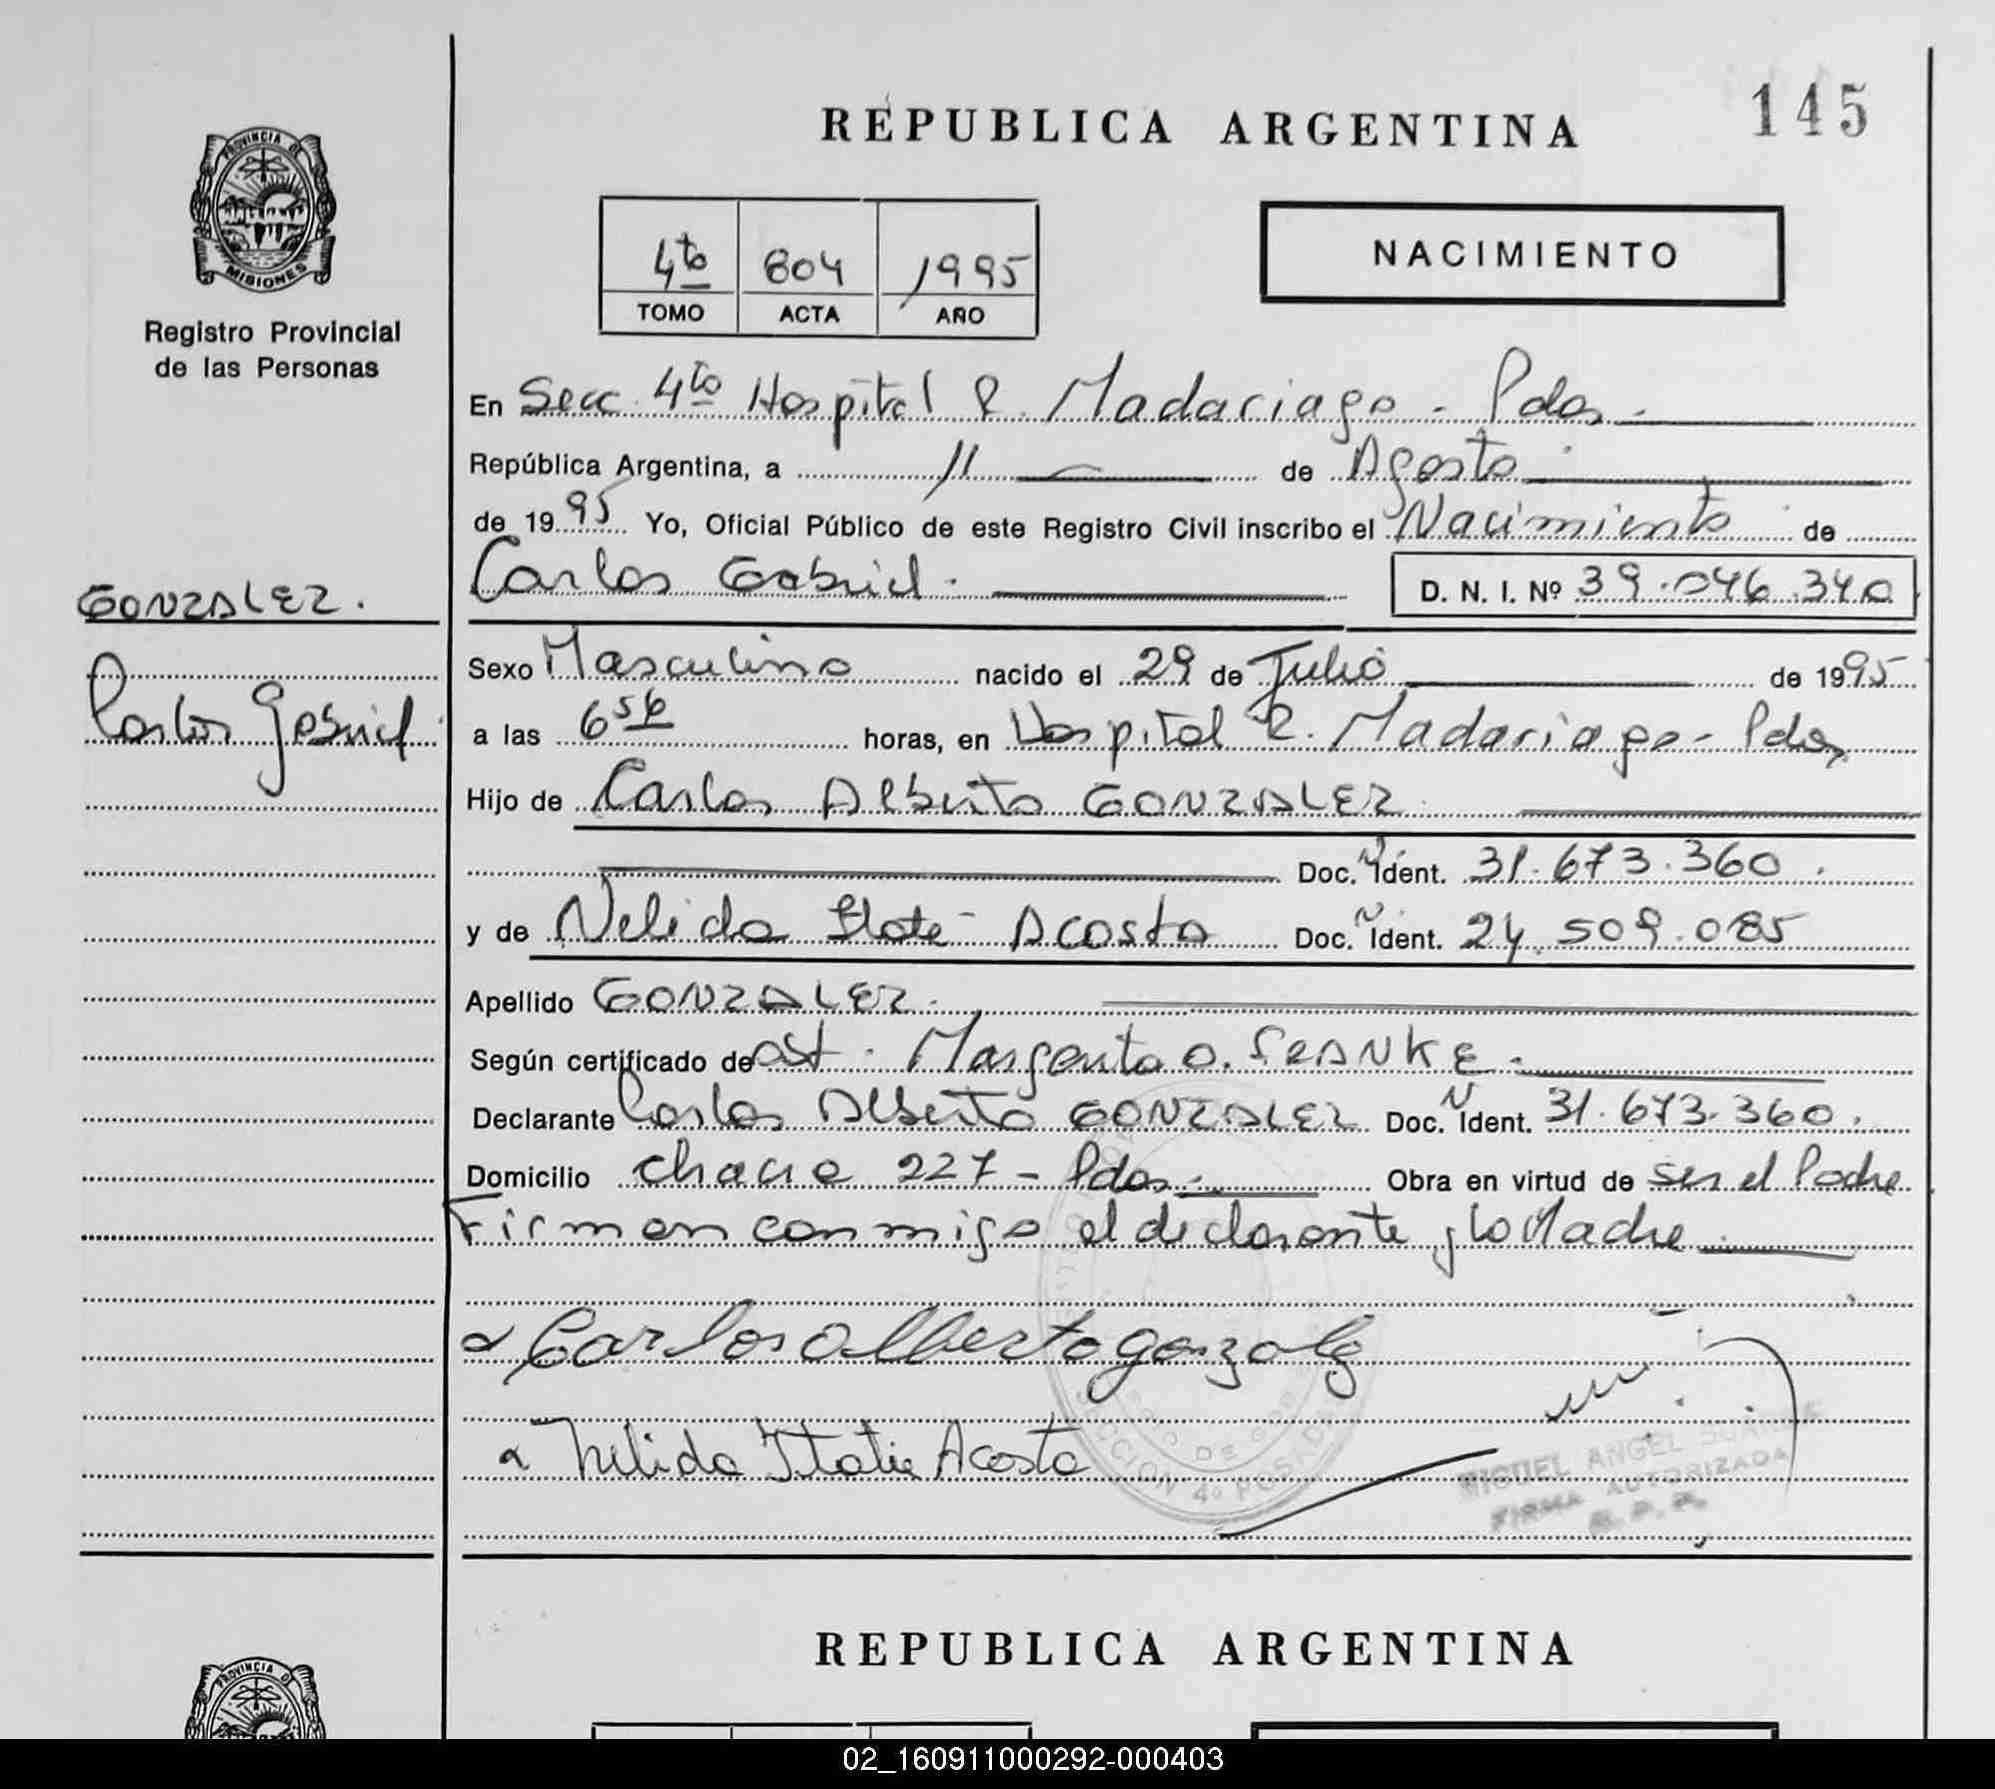 REPUBLICA ARGENTINA
145
PROVINCIA DE
MISIONES
Registro Provincial
de las Personas
4to 804 1995
TOMO ACTA AÑO
NACIMIENTO
En Secc. 4to Hospital R. Madariaga - Pdas -
República Argentina, a 11 de Agosto
de 1995 Yo, Oficial Público de este Registro Civil inscribo el Nacimiento de
Carlos Gabriel. D. N. I. Nº 39.046.340
GONZALEZ.
Carlos Gabriel
Sexo Masculino nacido el 29 de Julio de 1995
a las 6 56 horas, en Hospital R. Madariaga - Pdas
Hijo de Carlos Alberto GONZALEZ
Doc. N Ident. 31.673.360.
y de Nelida Itatí Acosta Doc. N Ident. 24.509.085
Apellido GONZALEZ.
Según certificado de Ost. Margarita O.
Declarante Carlos Alberto GONZALEZ Doc. N Ident. 31.673.360.
Domicilio chacra 227 - Pdas. Obra en virtud de ser el Padre
Firman conmigo el declarante y la Madre
Carlos alberto gonzalez
Nelida Itatie Acosta
SECCION 4º POSADAS
MIGUEL ANGEL SUAREZ
FIRMA AUTORIZADA
R. P. P.
REPUBLICA ARGENTINA
PROVINCIA DE
02_160911000292-000403